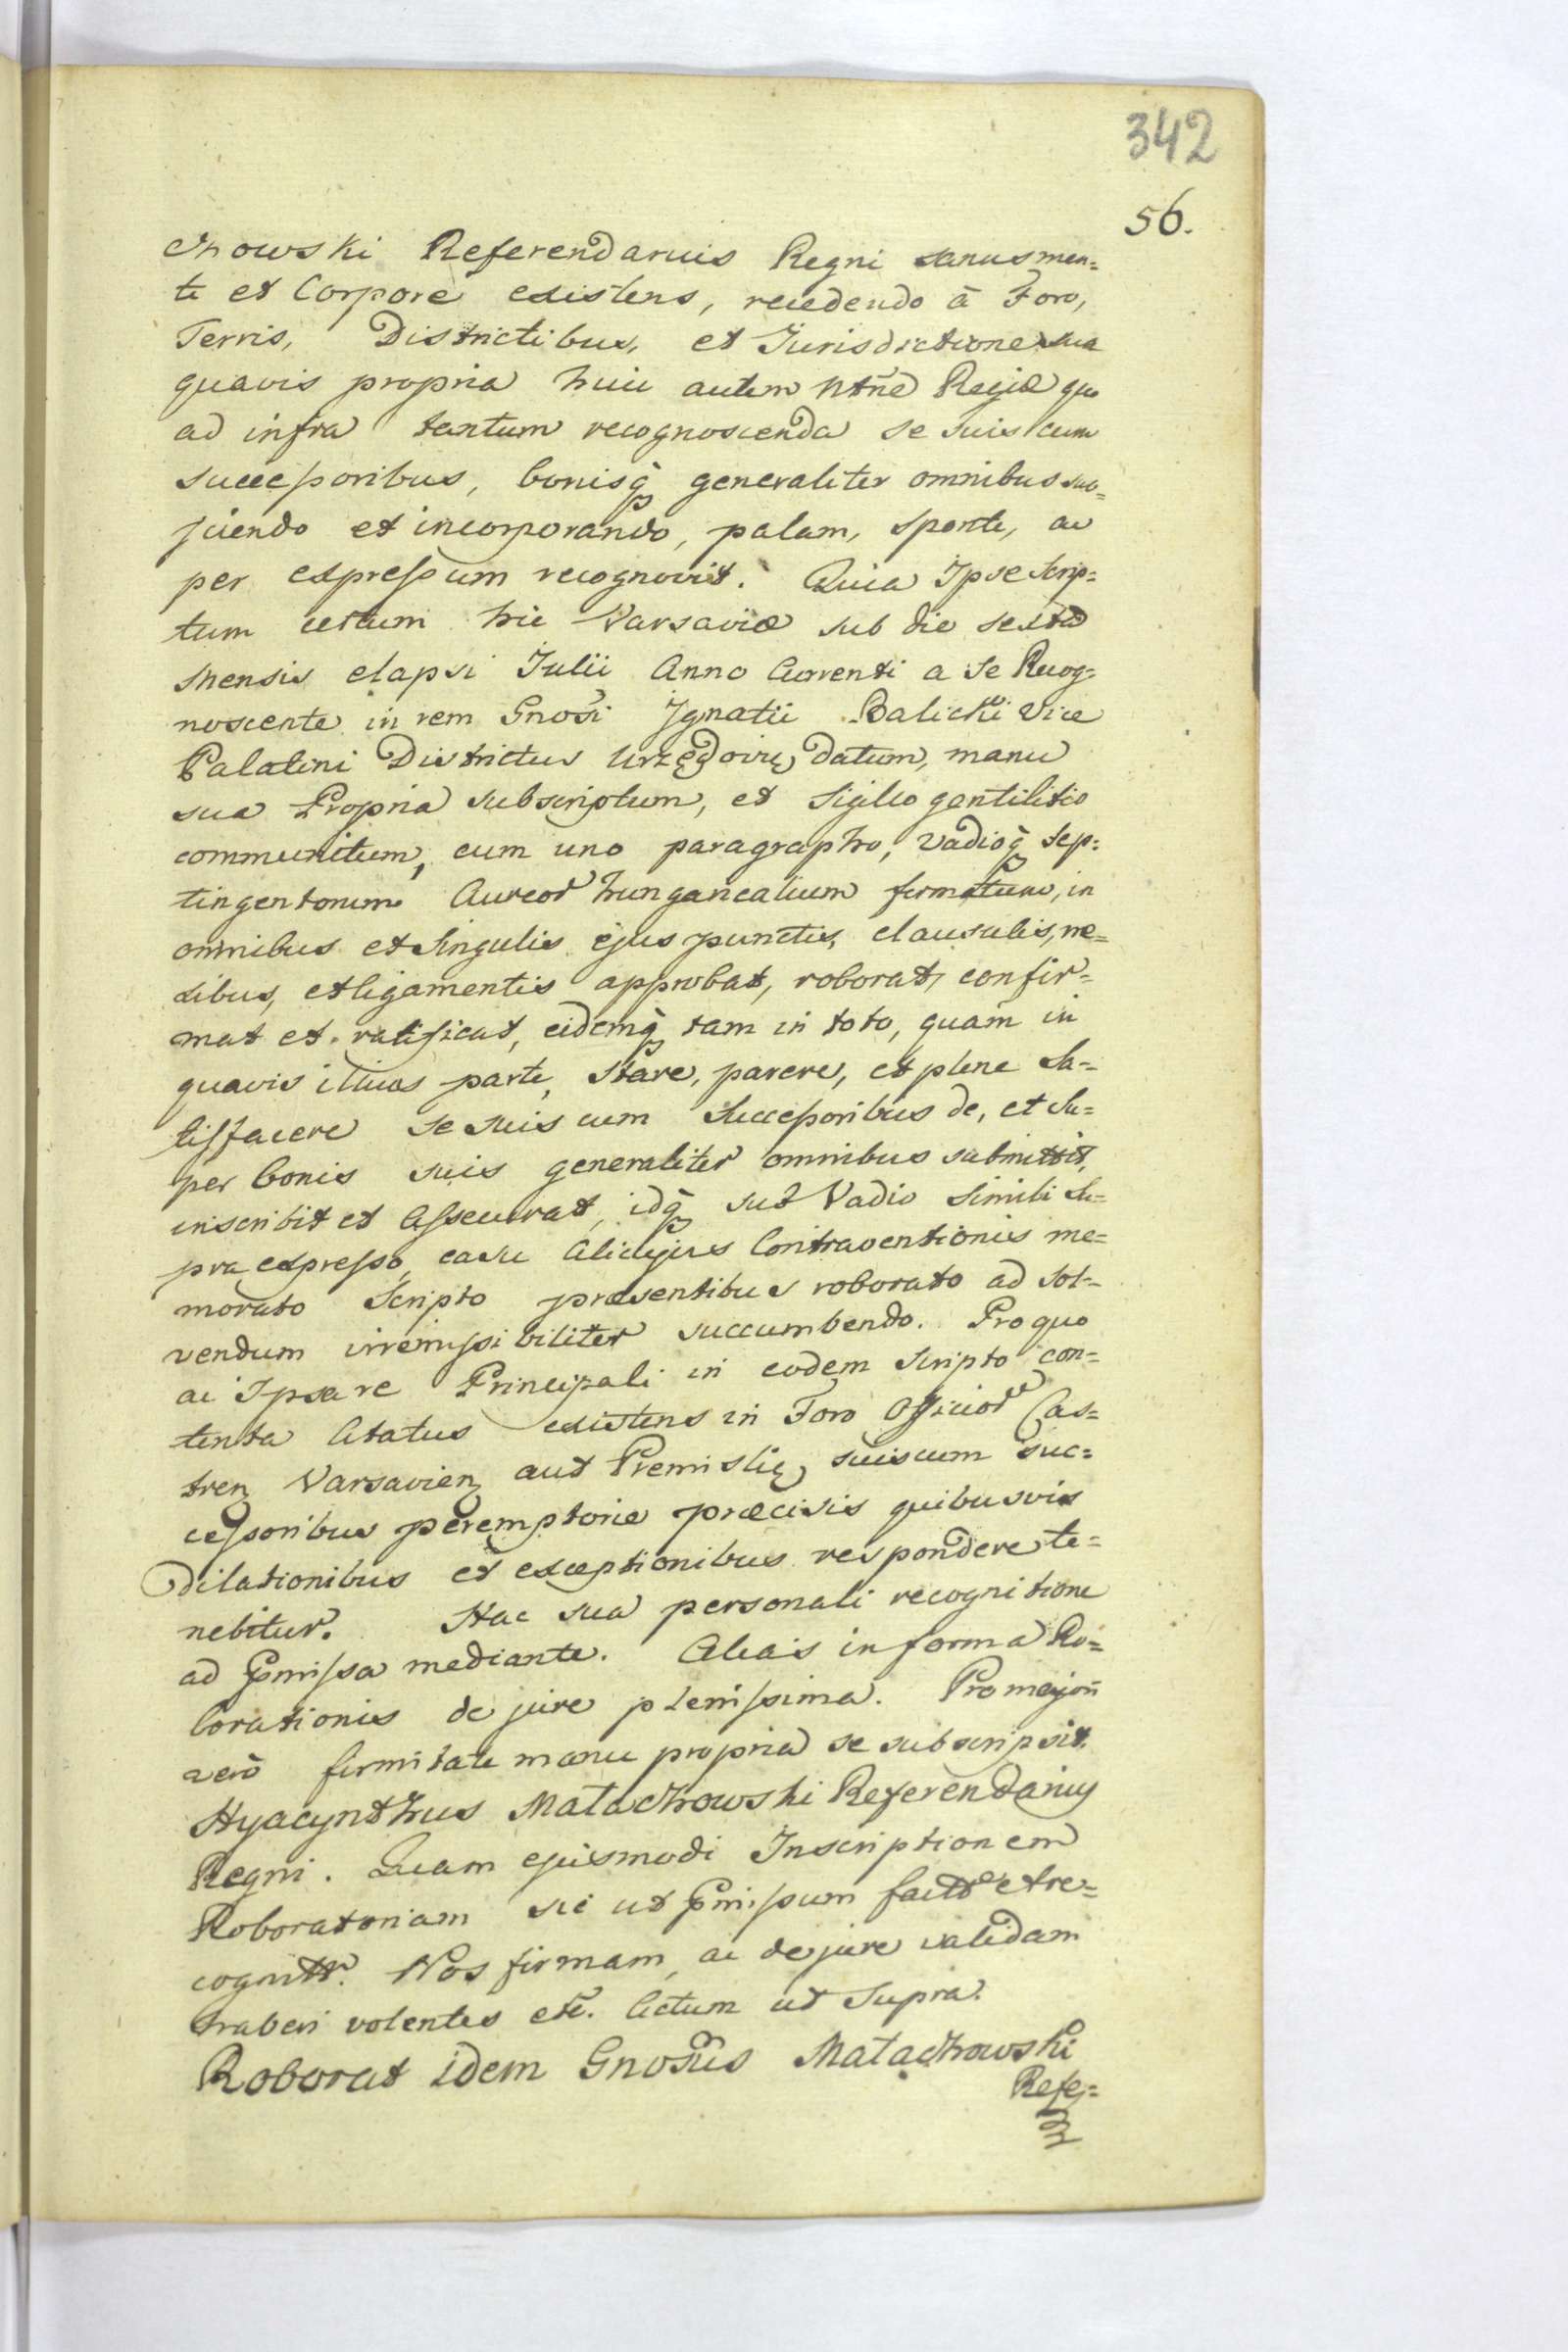 342
56.
chowski Referendarius Regni sanus men=
te et Corpore existens, recedendo à Foro,
Terris, Districtibus, et Jurisdictione sua
quavis propria huic autem Nttñe Regiæ quo
ad infra tantum recognoscenda se suis cum
successoribus, bonisq̀ generaliter omnibus sub=
jiciendo et incorporando, palam, sponte, ac
per expressum recognovit. Quia Ipse Scrip=
tum certum hic Varsaviæ sub die sexta
mensis elapsi Julii Anno Currenti a se Recog=
noscente in rem Gnosi Ignatii Balicki Vice
Palatini Districtus Urzędovię datum, manu
sua Propria subscriptum, et Sigillo gentilitio
communitum, cum uno paragrapho, Vadioq̀ sep=
tingentorum Aureor hungaricalium firmatum, in
omnibus et Singulis ejus punctis, clausulis, ne=
xibus, et ligamentis approbat, roborat, confir=
mat et ratificat, eidemq̀ tam in toto, quam in
quavis illius parte, Stare, parere, et plene Sa=
tisfacere se suis cum Successoribus de, et Su=
per bonis suis generaliter omnibus submittit,
inscribit et Assecurat, idq̀ sub Vadio Simili Su=
pra expresso, casu Alicujus Contraventionis me=
morato Scripto præsentibus roborato ad sol=
vendum irremissibiliter succumbendo. Pro quo
ac Ipsa re Principali in eodem Scripto con=
tenta Citatus existens in Foro Officior Cas=
tren Varsavien aut Premislię, suis cum suc=
cessoribus peremptorie præcisis quibusvis
dilationibus et exceptionibus respondere te=
nebitur. Hac sua personali recognitione
ad Pmissa mediante. Alias in forma Ro=
borationis de jure plenissima. Pro majori
verò firmitate manu propria se subscripsit.
Hyacynthus Małachowski Referendarius
Regni. Quam ejusmodi Inscriptionem
Roboratoriam sic ut Pmissum fact et re=
cognitt. Nos firmam, ac de jure validam
haberi volentes etc. Actum ut Supra.
Roborat idem Gnosus Małachowski
Refe=